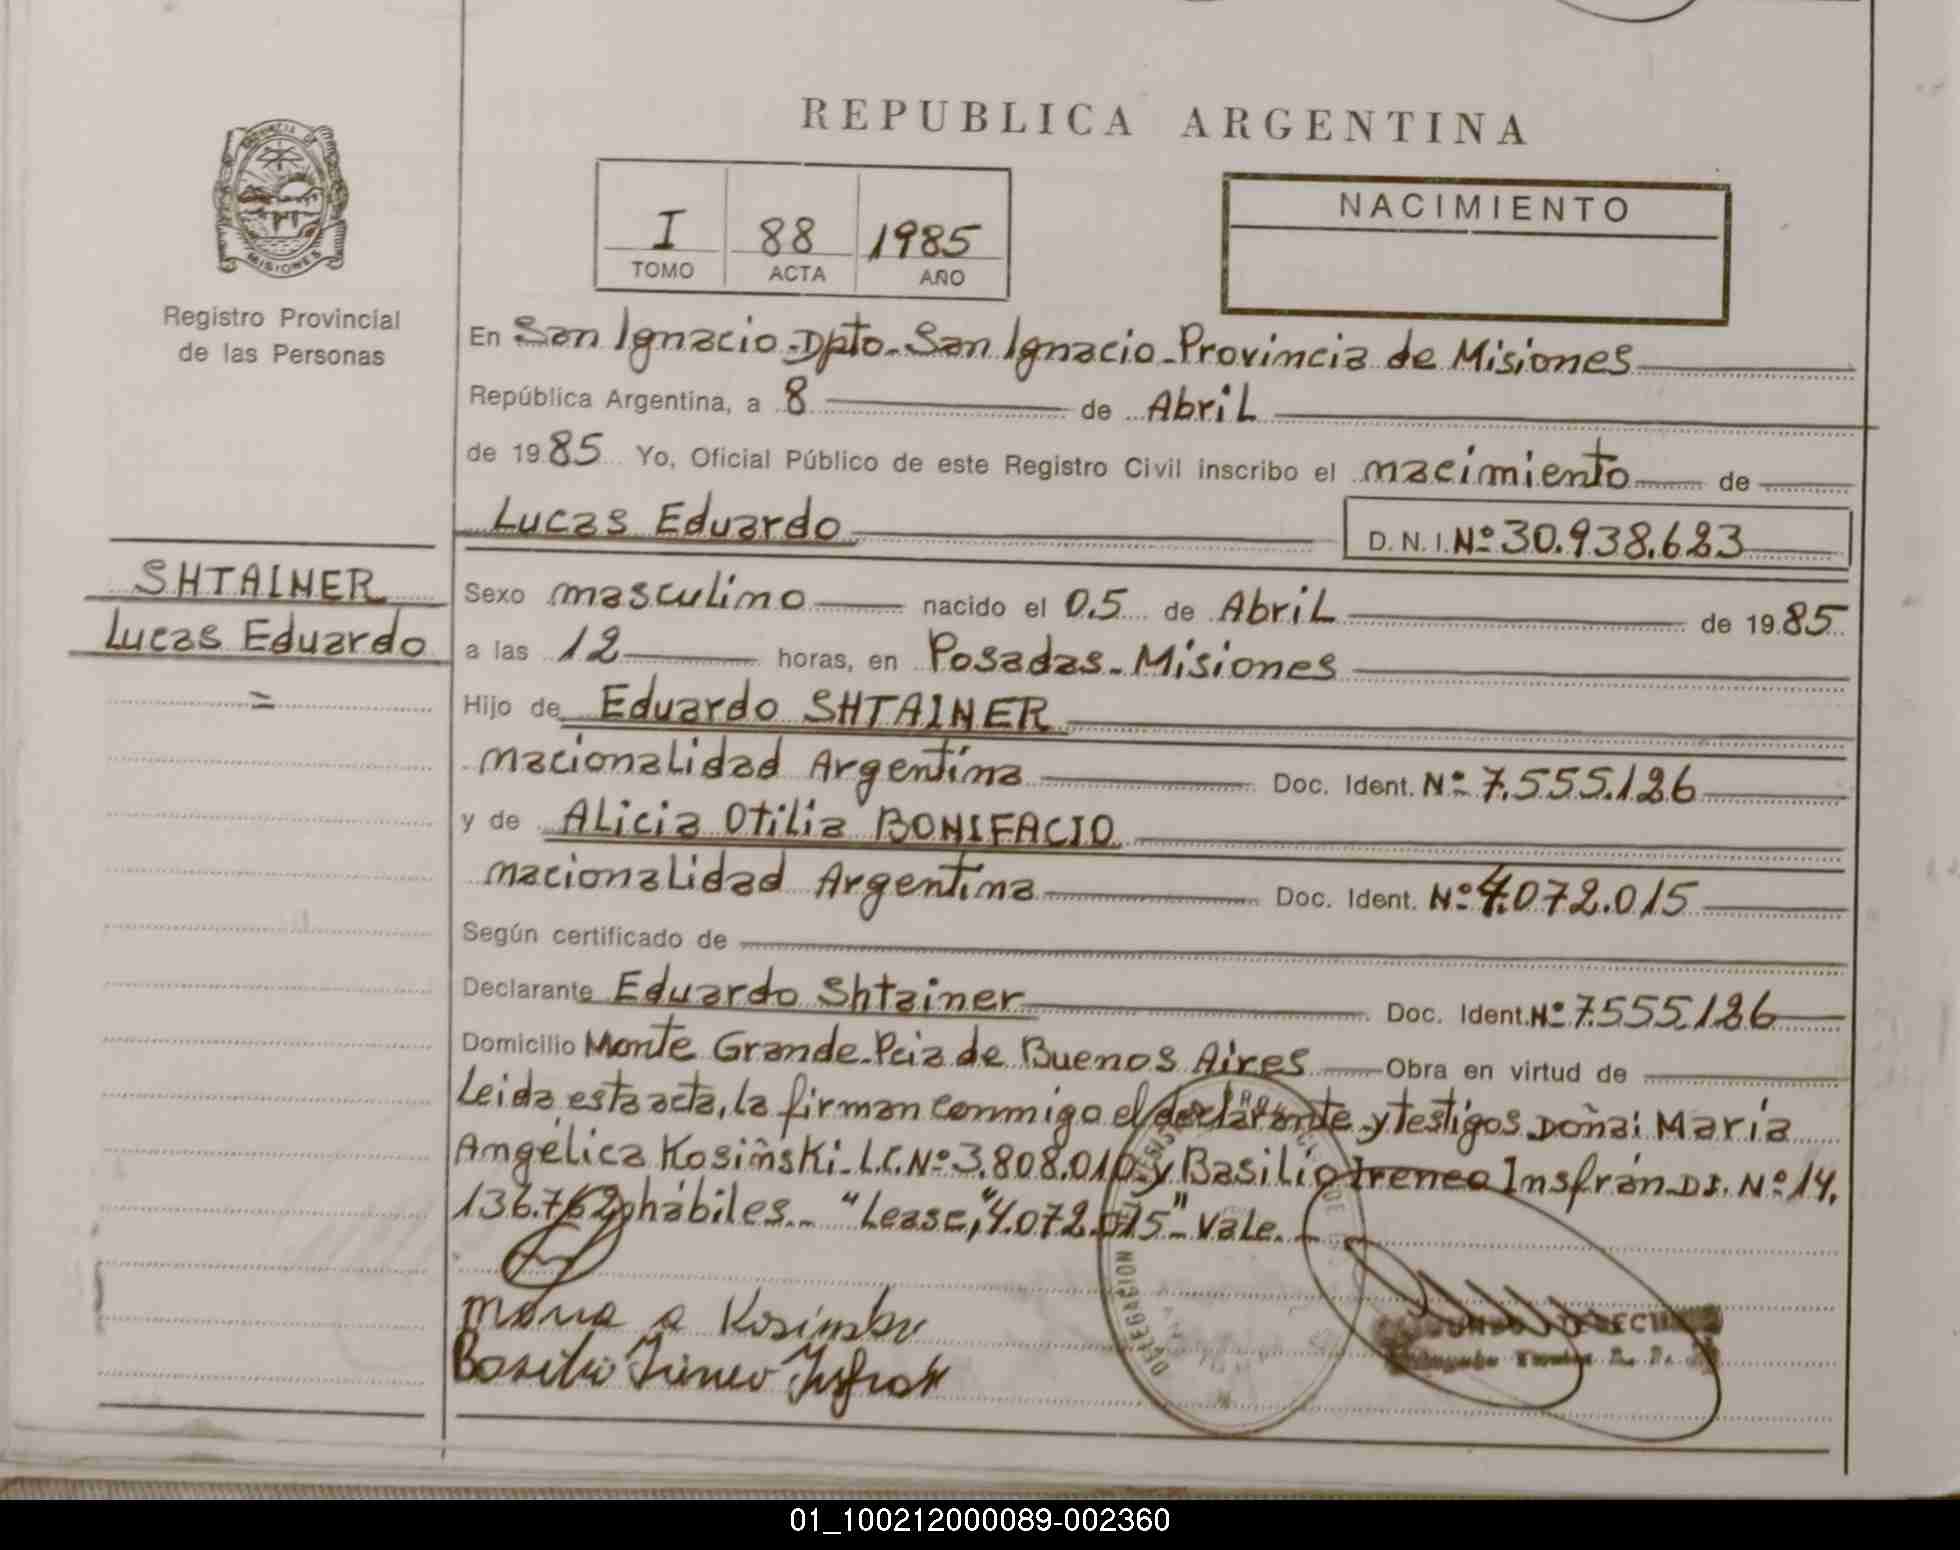 REPUBLICA ARGENTINA
PROVINCIA DE MISIONES
Registro Provincial
de las Personas
I 88 1985
TOMO ACTA AÑO
NACIMIENTO
En San Ignacio-Dpto-San Ignacio-Provincia de Misiones
República Argentina, a 8 de Abril
de 1985 Yo, Oficial Público de este Registro Civil inscribo el nacimiento de
Lucas Eduardo D.N.I. Nº 30.938.683
SHTAINER
Lucas Eduardo
=
Sexo masculino nacido el 05 de Abril de 1985
a las 12 horas, en Posadas-Misiones
Hijo de Eduardo SHTAINER
nacionalidad Argentina Doc. Ident. Nº 7.555.126
y de Alicia Otilia BONIFACIO
nacionalidad Argentina Doc. Ident. Nº 4.072.015
Según certificado de
Declarante Eduardo Shtainer Doc. Ident. Nº 7.555.126
Domicilio Monte Grande-Pcia de Buenos Aires Obra en virtud de
Leida esta acta, la firman conmigo el declarante y testigos Doña: María
Angélica Kosiñski-L.C.Nº 3.808.010 y Basilio Ireneo Insfrán D.I. Nº 14.
136.762 hábiles.- "Lease, "4.072.015"- Vale.-
Maria A Kosinski
Basilio Ireneo Insfran
DELEGACION
01_100212000089-002360